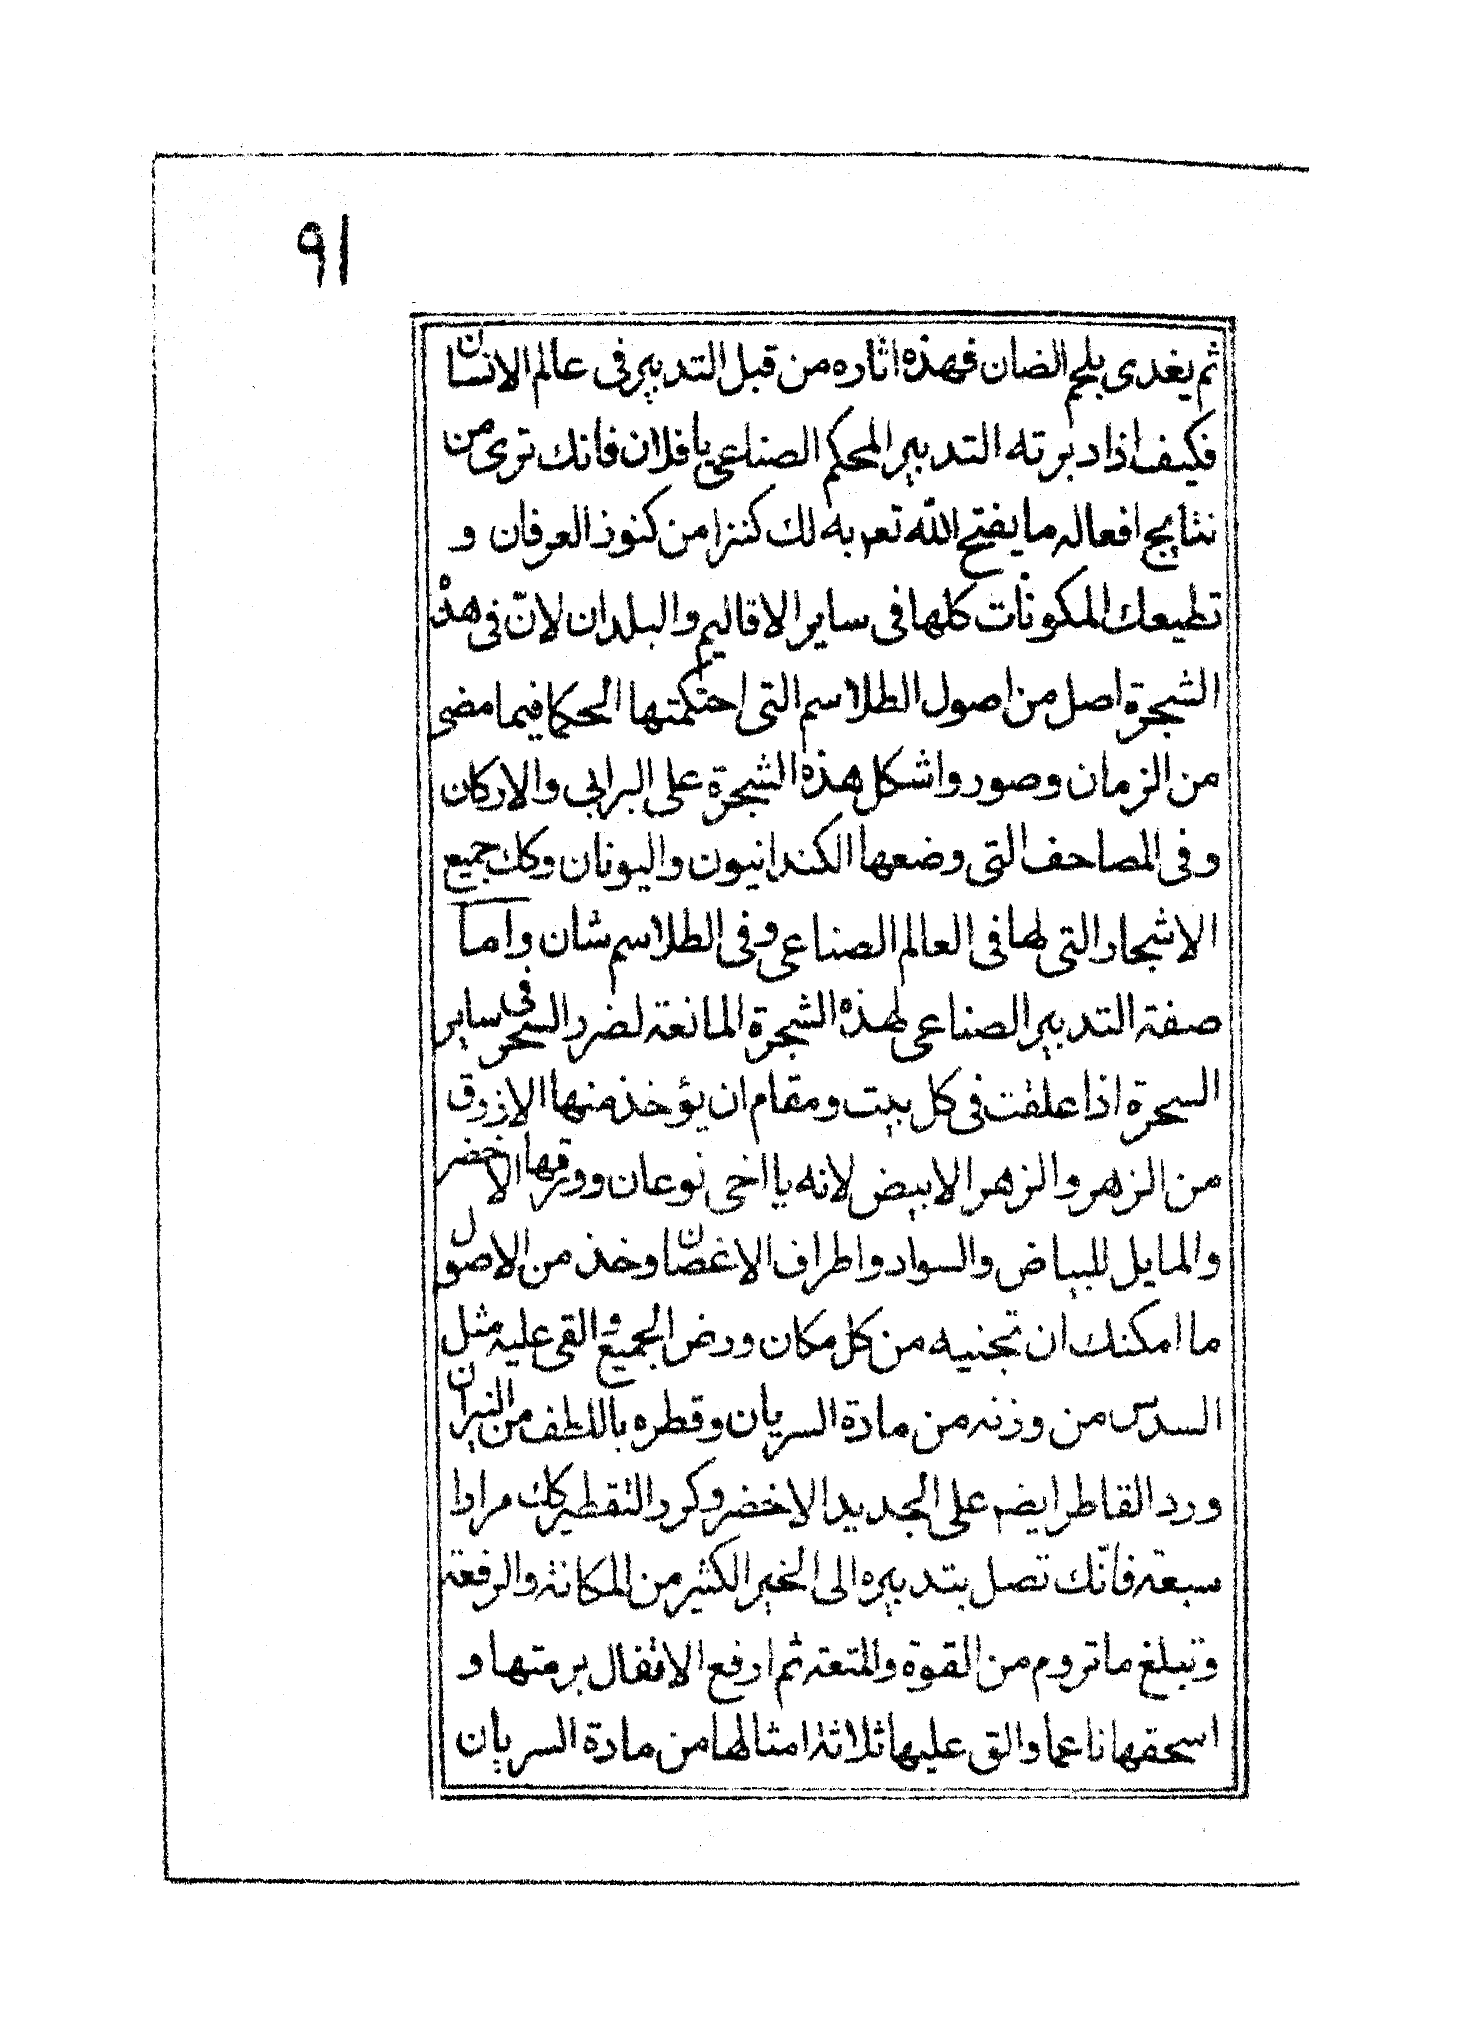 ٩١
ثم يغدى بلحم الضان فهذه اثاره من قبل التدبير فى عالم الانسان
فكيف اذا دبرته التدبير المحكم الصناعى يا فلان فانك ترى من
نتايج افعاله ما يفتح الله تعر به لك كنزا من كنوز العرفان و
تطيعك المكونات كلها فى ساير الاقاليم والبلدان لانّ فى هذه
الشجرة اصل من اصول الطلاسم التى احتكمتها الحكما فيما مضى
من الزمان وصور واشكل هذه الشجرة على البرابى والاركان
وفى المصاحف التى وضعها الكندانيون واليونان وكك جميع
الاشجار التى لها فى العالم الصناعى وفى الطلاسم شان واما
صفة التدبير الصناعى لهذه الشجرة المانعة لضرر السحر فى ساير
السحرة اذا علقت فى كل بيت ومقام ان يؤخذ منها الازروق
من الزهر والزهر الابيض لانه يا اخى نوعان وورقها الاخضر
والمايل للبياض والسواد واطراف الاغصان وخذ من الاصول
ما امكنك ان تجنيه من كل مكان ورض الجميع والقى عليه مثل
السدس من وزنه من مادة السريان وقطره باللطف من النيران
ورد القاطر ايضم على الجديد الاخضر وكرر التقطير كك مرارا
سبعة فانّك تصل بتدبيره الى الخير الكثير من المكانة والرفعة
وتبلغ ما تروم من القوة والمتعة ثم ارفع الاثفال برمتها و
اسحقها ناعما والق عليها ثلاثة امثالها من مادة السريان